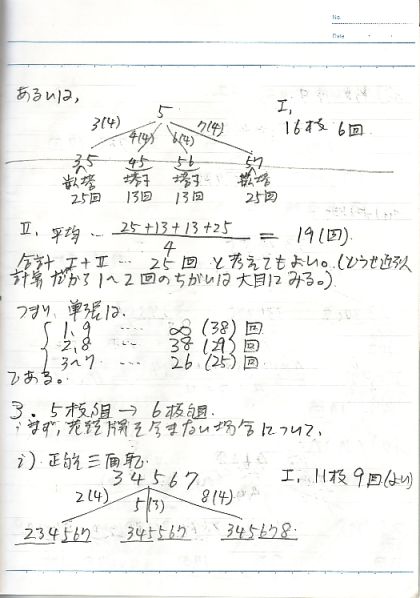 No.
Date
あるいは、
5
I、
16枚 6回
3(4) 4(4) 6(4) 7(4)
35 45 56 57
嵌塔 塔子 塔子 嵌塔
25回 13回 13回 25回
II. 平均 … 25+13+13+25 / 4 = 19(回).
合計 I+II … 25回 と考えてもよい。(どうせ近似
計算だから1〜2回のちがいは大目にみる。)
つまり、単張は、
1,9 …… ∞ (38) 回
2,8 …… 38 (29) 回
3〜7 …… 26 (25) 回
である。
3. 5枚組 → 6枚組.
まず、花塔牌を含まない場合について、
i) 正的三面転
3 4 5 6 7
I、11枚 9回(より)
2(4) 5(3) 8(4)
234567 345567 345678